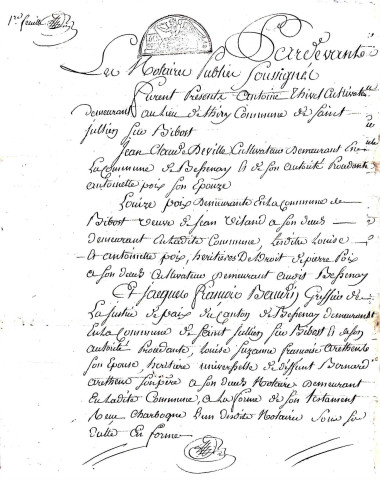 1re feuille
Pardevant
Le Notaire Public Soussigné
furent Presents Antoine Thivel Cultivateur
demeurant au lieu de Commune de Saint
Jullien Sur Bibost
Jean Claude Deville Cultivateur Demeurant En
La Commune de Bessenay & de son autorité Procedante
antoinette poix son Epouze
Louize poix Demeurante En La Commune de
Bibost veuve de Jean Viland a son deces
demeurant en Ladite Commune, Lesdites Louise
& antoinette poix, heritières de Droit de pierre poix
a son deces Cultivateur Demeurant audit Bessenay
Et Jacques François Greffier de
La Justice de paix du Canton de Bessenay demeurant
En La Commune de Saint Jullien Sur Bibost & de son
autorité Procedante, Louise Suzanne françoise
son Epouse, heritiere universelle de deffunt Bernard
son pere a son deces Notaire Demeurant
En Ladite Commune, a la forme de son testament
Reçu Charbogne L'un desdits Notaires Sous sa
datte En forme